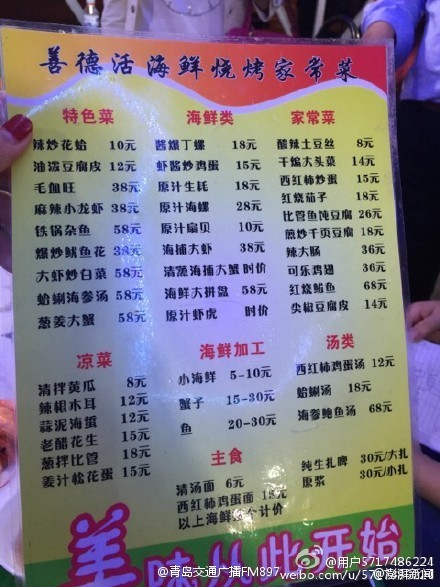 善德活海鲜烧烤家常菜
特色菜
辣炒花蛤 10元
油泼豆腐皮 12元
毛血旺 38元
麻辣小龙虾 38元
铁锅杂鱼 58元
爆炒鱿鱼花 38元
大虾炒白菜 58元
蛤蜊海参汤 58元
葱姜大蟹 58元
海鲜类
酱爆丁螺 18元
虾酱炒鸡蛋 15元
原汁生蚝 18元
原汁海螺 28元
原汁扇贝 10元
海捕大虾 38元
清蒸海捕大蟹 时价
海鲜大拼盘 58元
原汁虾虎 时价
家常菜
酸辣土豆丝 8元
干煸大头菜 14元
西红柿炒蛋 15元
红烧茄子 18元
比管鱼炖豆腐 26元
煎炒千页豆腐 18元
辣大肠 36元
可乐鸡翅 36元
红烧鲅鱼 68元
尖椒豆腐皮 14元
凉菜
清拌黄瓜 8元
辣根木耳 12元
蒜泥海蜇 12元
老醋花生 15元
葱拌比管 18元
姜汁松花蛋 15元
海鲜加工
小海鲜 5-10元
蟹子 15-30元
鱼 20-30元
汤类
西红柿鸡蛋汤 12元
蛤蜊汤 18元
海参鲍鱼汤 68元
主食
清汤面 6元
西红柿鸡蛋面
以上海鲜按个计价
纯生扎啤 30元/大扎
原浆 30元/小扎
美味从此开始
@青岛交通广播FM897
@用户5717486224
weibo.com/u/57
@澎湃新闻